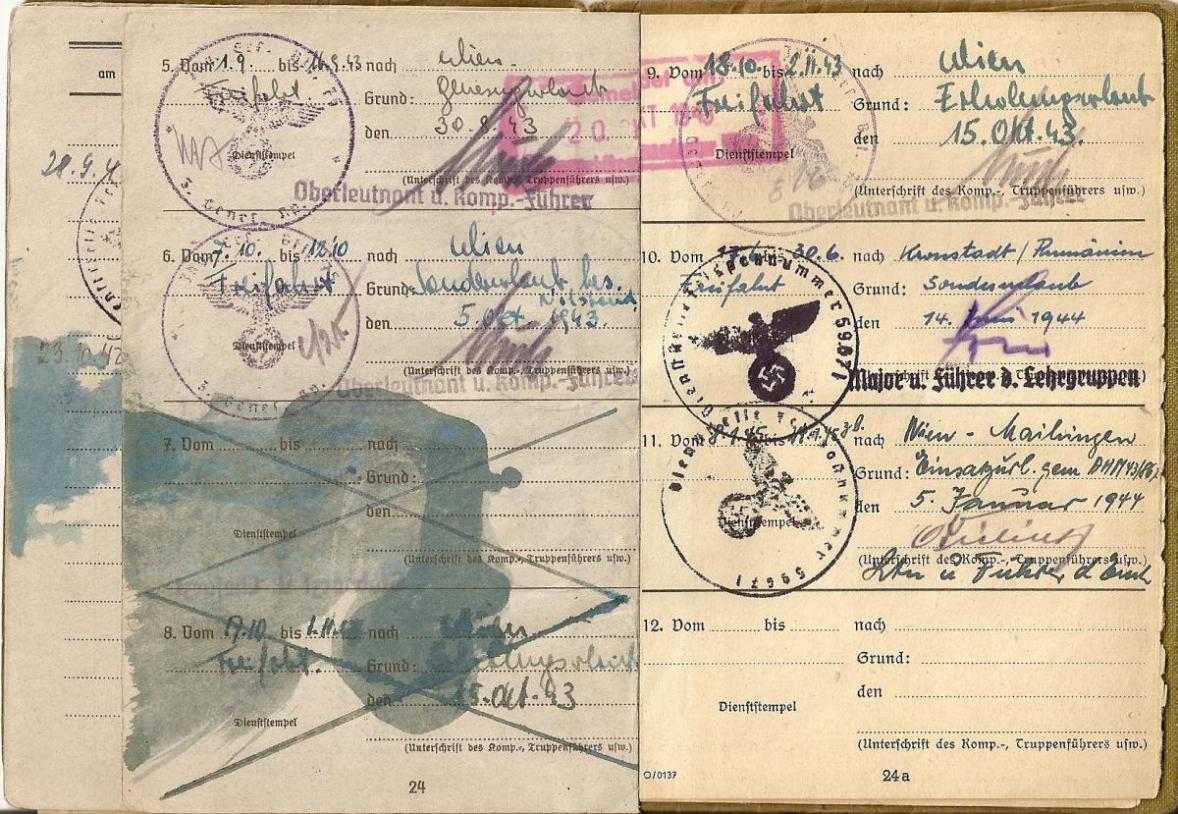 am
28.9.4
23.10.42
5. Vom 1.9. bis 14.9.43 nach Wien
Freifahrt Grund: Genesungsurlaub
den 30.8.43
Dienststempel
(Unterschrift des Komp.-, Truppenführers usw.)
Oberleutnant u. Komp.-Führer
6. Vom 7.10. bis 12.10 nach Wien
Freifahrt Grund: Sonderurlaub bes. Notstand
den 5. Okt. 1943.
Dienststempel
(Unterschrift des Komp.-, Truppenführers usw.)
Oberleutnant u. Komp.-Führer
7. Vom bis nach
Grund:
den
Dienststempel
(Unterschrift des Komp.-, Truppenführers usw.)
8. Vom 17.10 bis 1.11.43 nach Wien
Freifahrt. Grund: Erholungsurlaub
den 15. Okt. 43
Dienststempel
(Unterschrift des Komp.-, Truppenführers usw.)
24
9. Vom 18.10. bis 2.11.43 nach Wien
Freifahrt Grund: Erholungsurlaub
20. OKT 194
den 15. Okt. 43.
Dienststempel
(Unterschrift des Komp.-, Truppenführers usw.)
Oberleutnant u. Komp.-Führer
10. Vom bis 30.6. nach Kronstadt / Rumänien
Freifahrt Grund: Sonderurlaub
den 14. Juni 1944
Dienststelle Feldpostnummer 59671
Major u. Führer d. Lehrgruppen
11. Vom 8.1.45 bis nach Wien - Maihingen
Grund: Einsatzurl. gem
den 5. Januar 1944
Dienststempel
Dienststelle Feldpostnummer 59671
(Unterschrift des Komp.-, Truppenführers usw.)
Ltn u. Führer d. Einh
12. Vom bis nach
Grund:
den
Dienststempel
(Unterschrift des Komp.-, Truppenführers usw.)
O/0137
24a